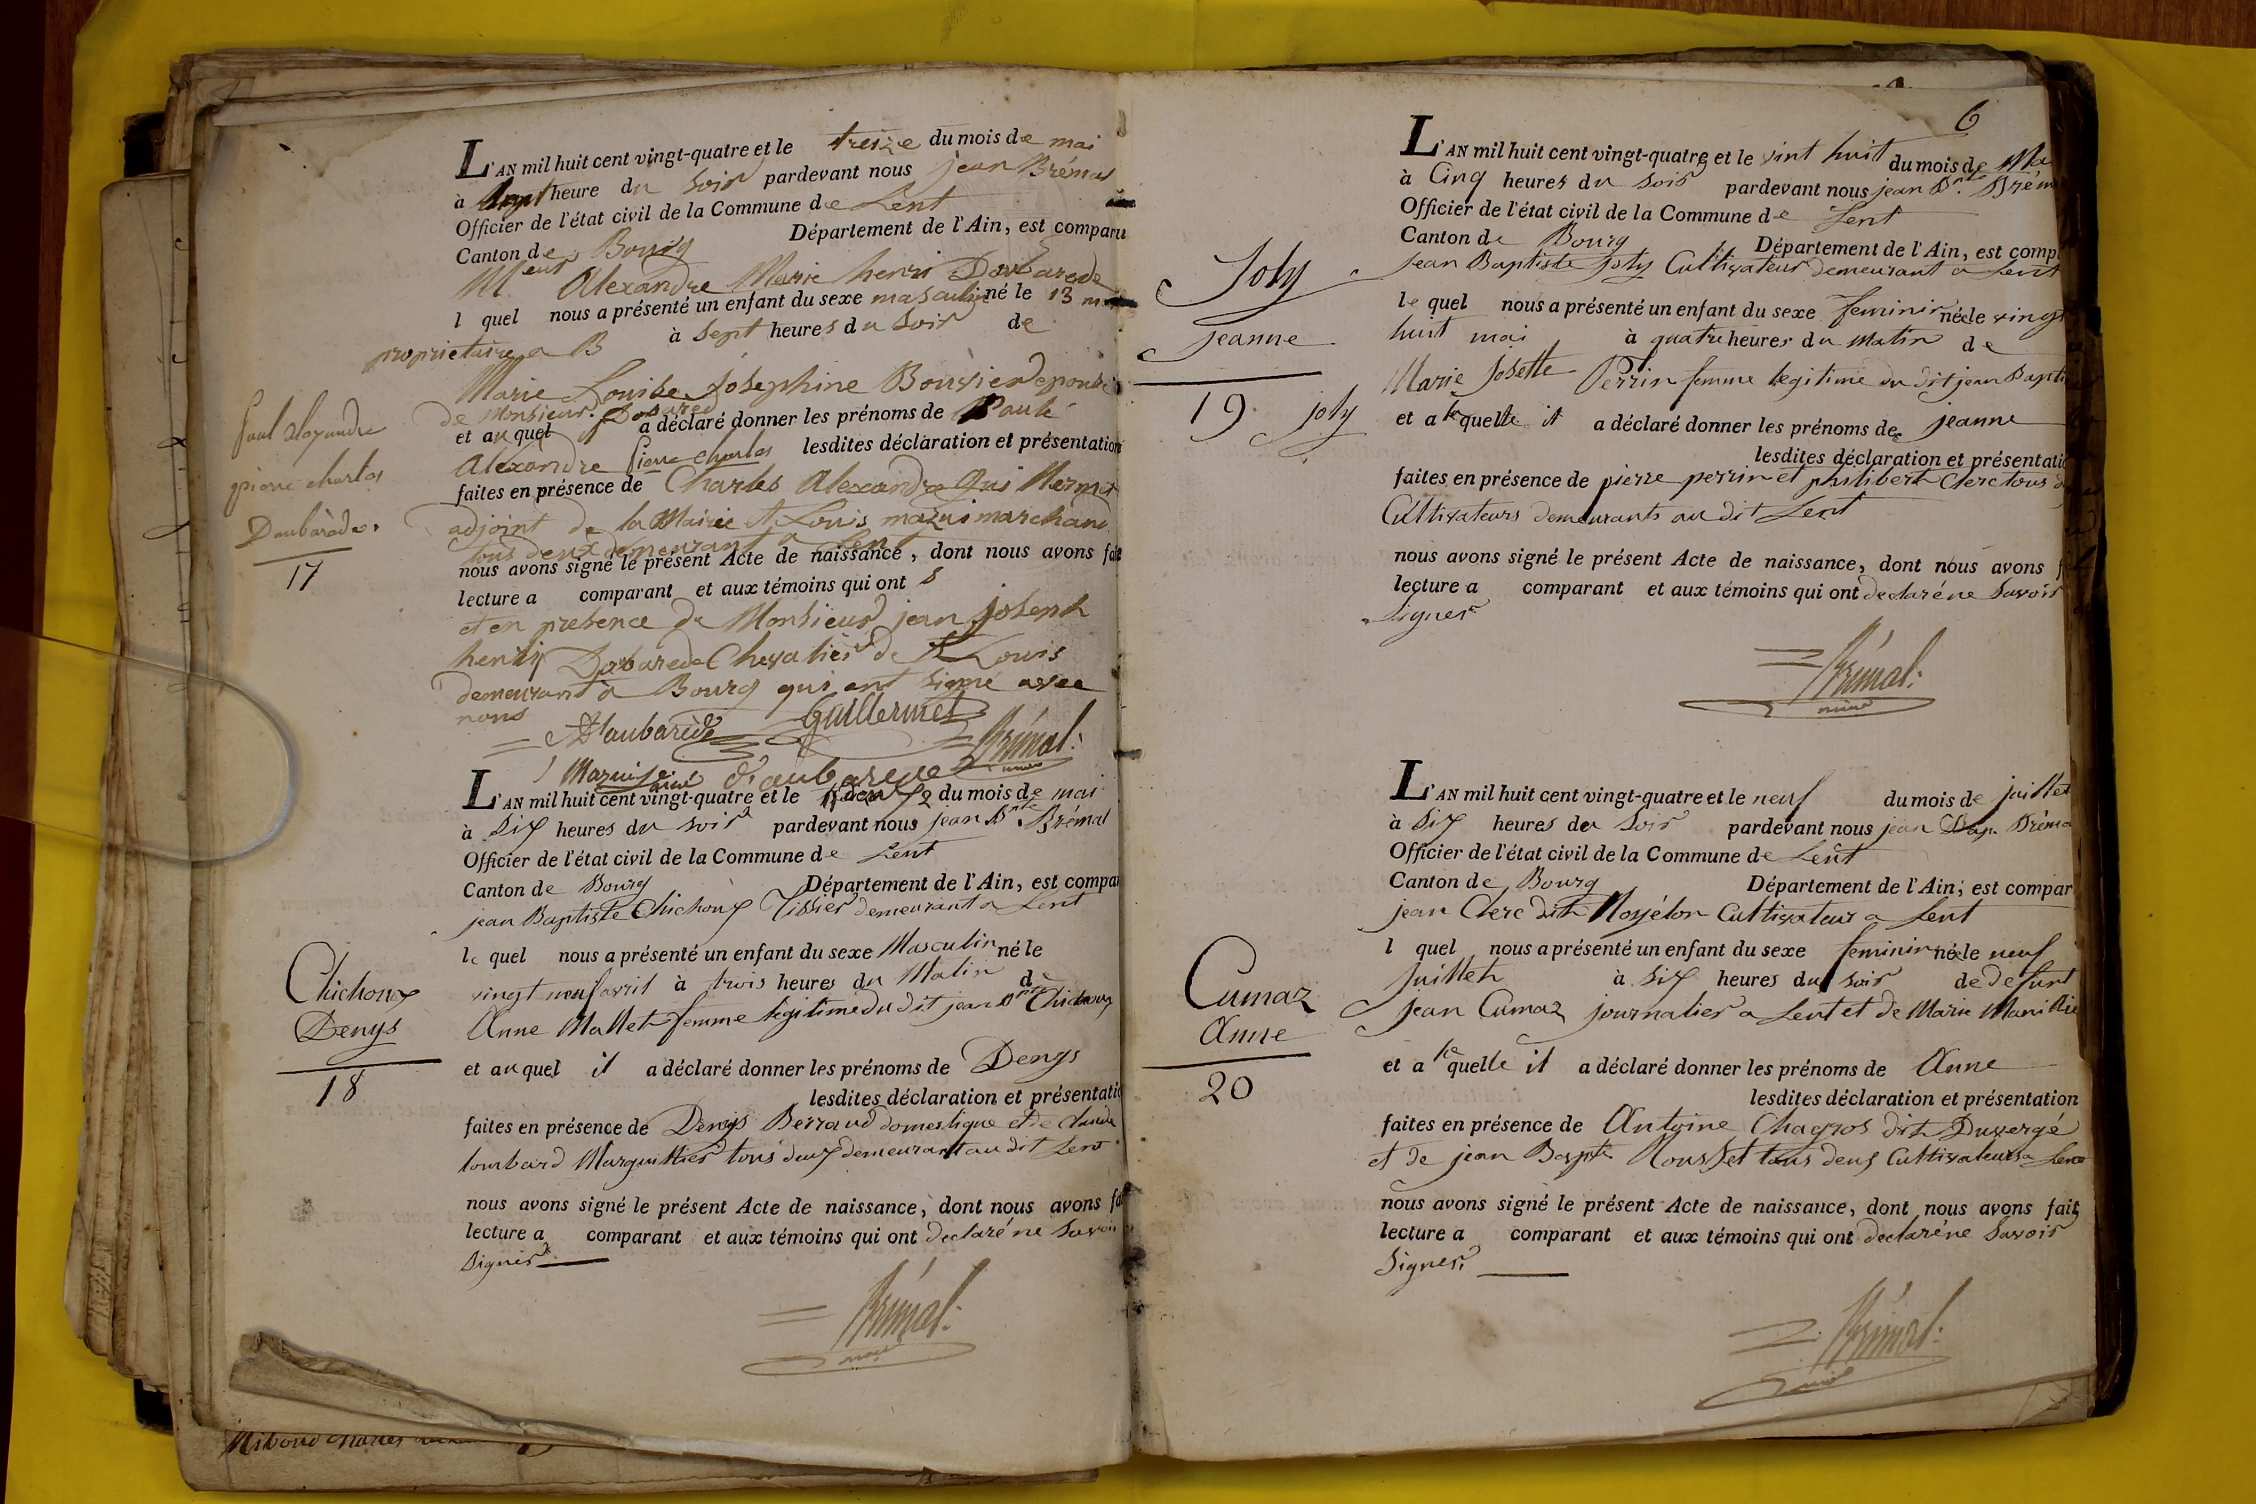 L'AN mil huit cent vingt-quatre et le treize du mois de mai
à heure du soir pardevant nous jean Brémal
Officier de l'état civil de la Commune de Lent
Canton de Bourg Département de l'Ain, est comparu
Alexandre Marie henri
l quel nous a présenté un enfant du sexe masculin né le 13 mai
propriétaire a B à sept heures du soir de
Marie Louise Josephine Bouvier epouse
de Monsieur
et au quel il a déclaré donner les prénoms de Paul
Alexandre pierre charles lesdites déclaration et présentation
faites en présence de Charles Alexandre
adjoint de la Mairie et Louis marchand
tous deux demeurant a Lent
nous avons signé le présent Acte de naissance, dont nous avons fait
lecture a comparant et aux témoins qui ont s
et en presence de Monsieur jean joseph
henry Chevalier de St Louis
demeurant à Bourg qui ont signé avec
nous
Guillermet
Brémal.
maire
Paul alexandre
pierre charles
Daubarède.
17
L'AN mil huit cent vingt-quatre et le 2 du mois de mai
à Six heures du soir pardevant nous jean Bte Brémal
Officier de l'état civil de la Commune de Lent
Canton de Bourg Département de l'Ain, est compa
jean Baptiste Chichoux Tissier demeurant a Lent
le quel nous a présenté un enfant du sexe Masculin né le
vingt neuf avril à trois heures du Matin de
Anne Mallet femme legitime du dit jean Bte Chichoux
et au quel il a déclaré donner les prénoms de Denys
lesdites déclaration et présentatio
faites en présence de Denys Berraud domestique et de claude
lombard Marguillier tous deux demeurant au dit Lent
nous avons signé le présent Acte de naissance, dont nous avons fai
lecture a comparant et aux témoins qui ont declaré ne Savoir
Signer
Brémal.
maire
Chichoux
Denys
18
6
L'AN mil huit cent vingt-quatre et le vint huit du mois de Ma
à Cinq heures du soir pardevant nous jean Bte Brém
Officier de l'état civil de la Commune de Lent
Canton de Bourg Département de l'Ain, est comp
Jean Baptiste Joly Cultivateur demeurant a Lent
le quel nous a présenté un enfant du sexe feminin née le vingt
huit mai à quatre heures du Matin de
Marie Josette Perrin femme legitime du dit jean Bapti
et a laquelle il a déclaré donner les prénoms de jeanne
lesdites déclaration et présentatio
faites en présence de pierre perrin et philibert Clerc tous d
Cultivateurs demeurants au dit Lent
nous avons signé le présent Acte de naissance, dont nous avons f
lecture a comparant et aux témoins qui ont declaré ne Savoir
Signer
Brémal.
maire
Joly
Jeanne
19 joly
L'AN mil huit cent vingt-quatre et le neuf du mois de juillet
à Six heures du Soir pardevant nous jean Bap. Bréma
Officier de l'état civil de la Commune de Lent
Canton de Bourg Département de l'Ain, est compar
jean Clerc dit Cultivateur a Lent
l quel nous a présenté un enfant du sexe feminin née le neuf
juillet à Six heures du soir de defunt
Jean Cumaz journalier a Lent et de Marie
et a laquelle il a déclaré donner les prénoms de Anne
lesdites déclaration et présentation
faites en présence de Antoine Chagros dit Duvergé
et de jean Bapte Rousset tous deux Cultivateurs a Lent
nous avons signé le présent Acte de naissance, dont nous avons fait
lecture a comparant et aux témoins qui ont declaré ne Savoir
Signer.
Brémal.
maire
Cumaz
Anne
20